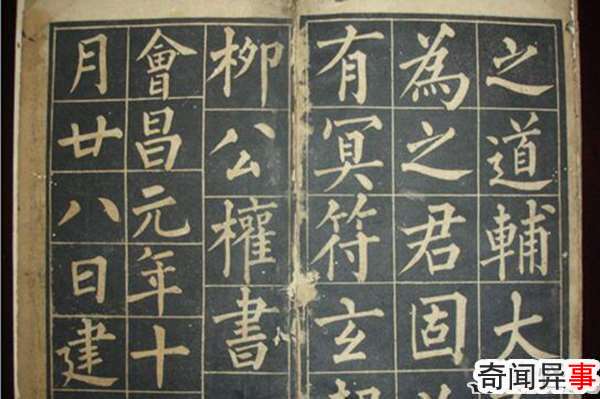 之道輔大
為之君固
有冥符玄
柳公權書
會昌元年十
月廿八日建
奇闻异事